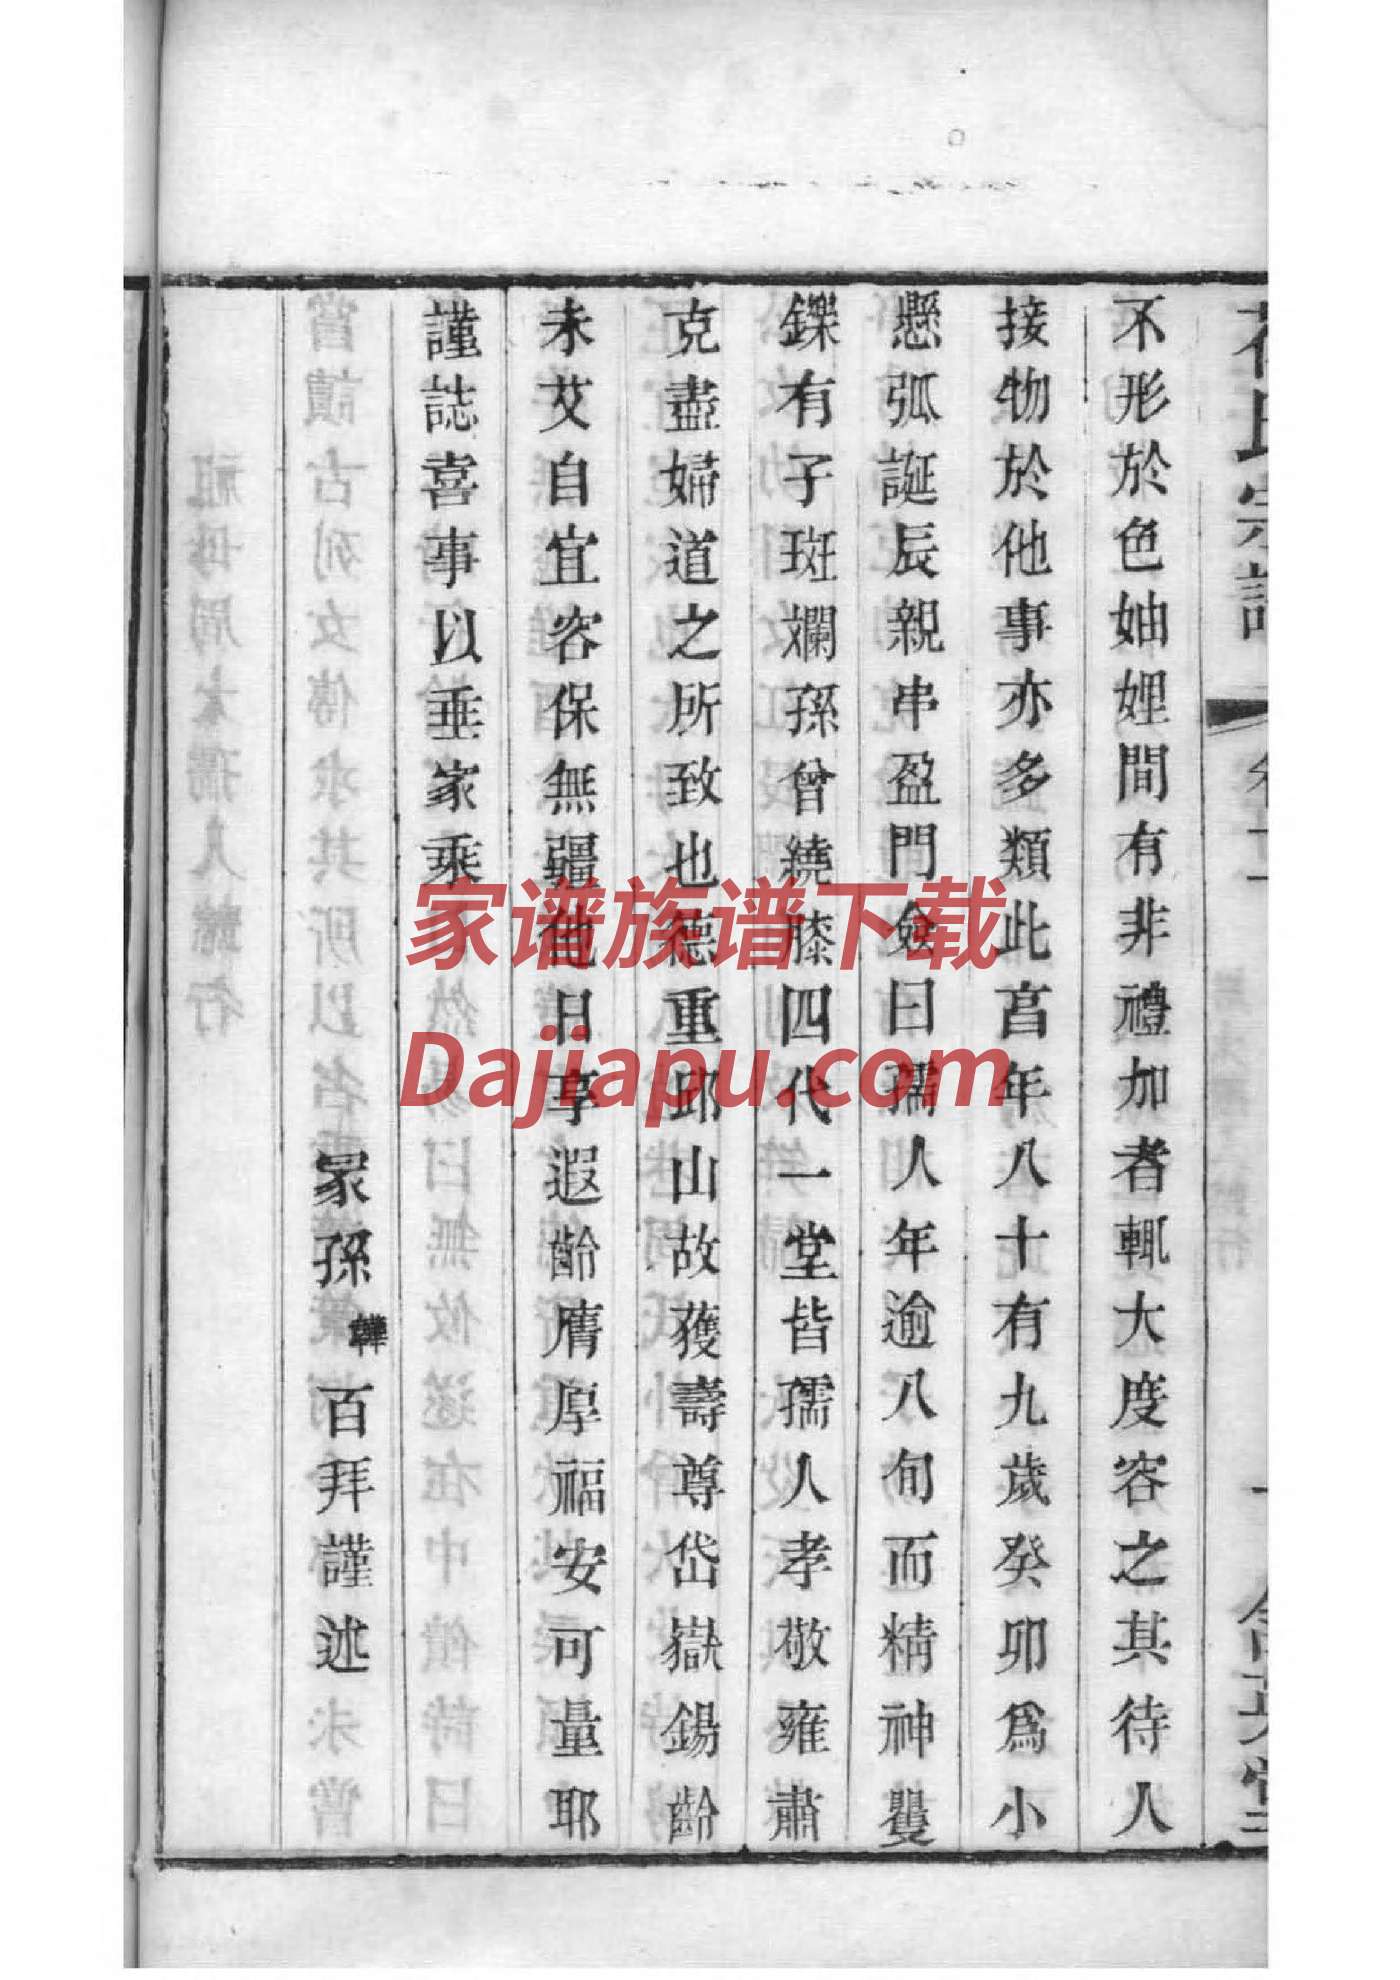 不形於色妯娌間有非禮加者輒大度容之其待人
接物於他事亦多類此宮年八十有九歲癸卯爲小
懸弧誕辰親串盈門僉曰孺人年逾八旬而精神矍
鑠有子斑斕孫曾繞膝四代一堂皆孺人孝敬雍肅
克盡婦道之所致也德重邱山故獲壽尊岱嶽錫齡
未艾自宜容保無疆他日享遐齡膺厚福安可量耶
謹誌喜事以垂家乘
冢孫 百拜謹述
家谱族谱下载
Dajiapu.com